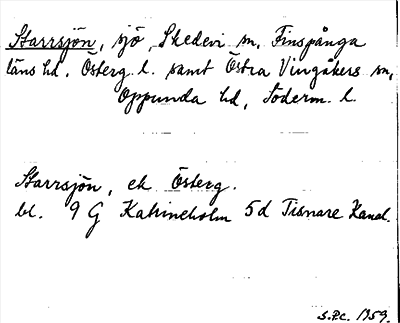 Starrsjön, sjö, Skedevi sn, Finspånga
läns hd, Österg. l. samt Östra Vingåkers sn,
Oppunda hd, Söderm. l.
Starrsjön, ek Österg.
bl. 9 G Katrineholm 5d Tisnare Kanal.
S.P.C. 1959.